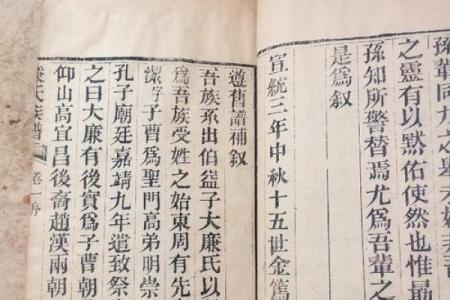 孫鞏同九之墓
之靈有以默佑使然也惟最
孫知所警替焉尤爲吾輩之
是爲叙
宣統三年中秋十五世金篤
遵舊譜補叙
吾族系出伯益子大廉氏以
爲吾族受姓之始東周有先
潔字子曹爲聖門高弟明崇
孔子廟廷嘉靖九年遣致祭
之曰大廉有後實爲子曹朝
仰山高宜昌後裔趙漢兩朝
廉氏族譜 卷一序